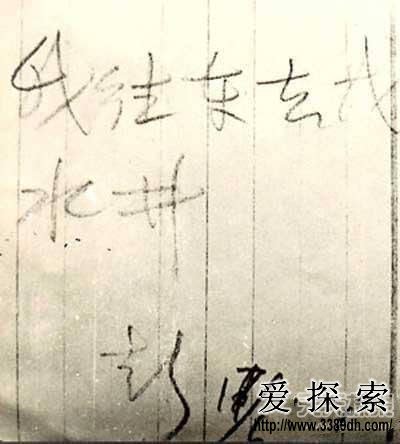 我往东去找
水井
彭
爱探索
http://www.3389dh.com/